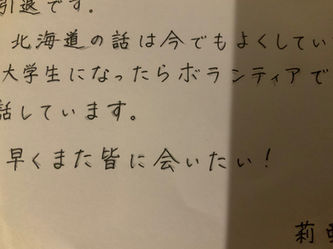 引退です。
北海道の話は今でもよくしてい
大学生になったらボランティアで
話しています。
早くまた皆に会いたい!
莉